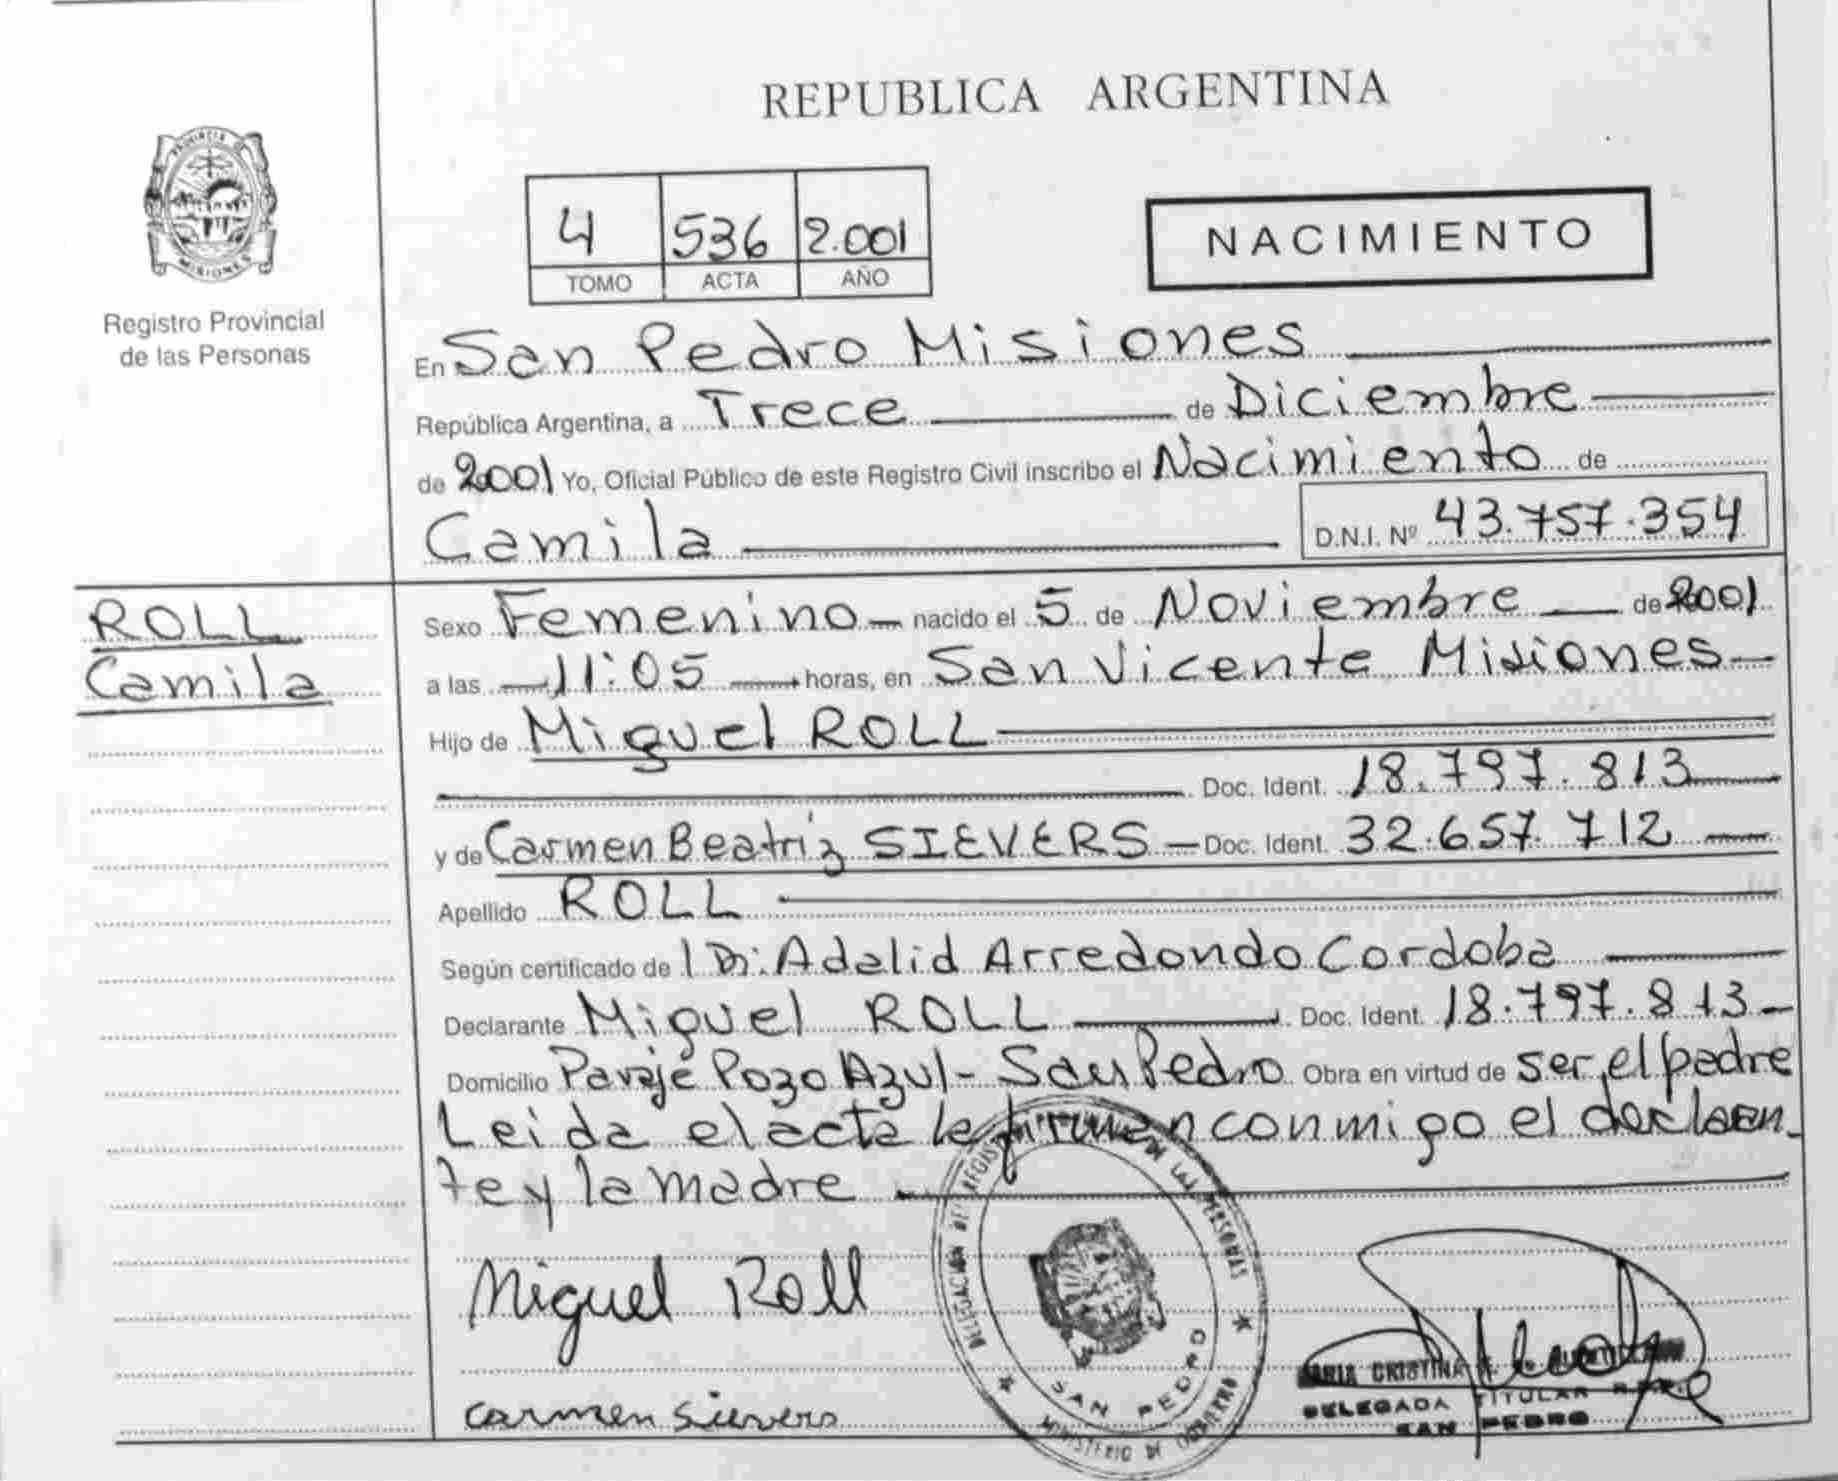 REPUBLICA ARGENTINA
PROVINCIA DE
MISIONES
Registro Provincial
de las Personas
4 536 2.001
TOMO ACTA AÑO
NACIMIENTO
En San Pedro Misiones
República Argentina, a Trece de Diciembre
de 2001 Yo, Oficial Público de este Registro Civil inscribo el Nacimiento de
Camila D.N.I. Nº 43.757.354
ROLL
Camila
Sexo Femenino nacido el 5 de Noviembre de 2001
a las 11:05 horas, en San Vicente Misiones
Hijo de Miguel ROLL
Doc. Ident. 18.797.813
y de Carmen Beatriz SIEVERS Doc. Ident. 32.657.712
Apellido ROLL
Según certificado de Adalid Arredondo Cordoba
Declarante Miguel ROLL Doc. Ident. 18.797.813
Domicilio Paraje Pozo Azul - San Pedro Obra en virtud de ser el padre
Leida el acta la firman conmigo el declaran-
te y la madre
Miguel Roll
Carmen Sievers
DELEGACION DEL REGISTRO DE LAS PERSONAS
SAN PEDRO
MINISTERIO DE GOBIERNO
MARIA CRISTINA
DELEGADA TITULAR
SAN PEDRO